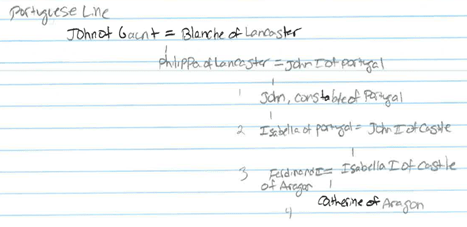 Portuguese Line
John of Gaunt = Blanche of Lancaster
Philippa of Lancaster = John I of Portugal
1 John, constable of Portugal
2 Isabella of Portugal = John I of Castile
3 Ferdinand II = Isabella I of Castile
of Aragon
Catherine of Aragon
4